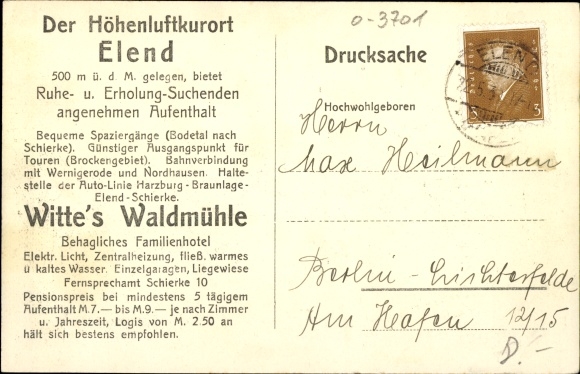 o-3701
Der Höhenluftkurort
Elend
500 m ü. d. M. gelegen, bietet
Ruhe- u. Erholung-Suchenden
angenehmen Aufenthalt
Bequeme Spaziergänge (Bodetal nach
Schierke). Günstiger Ausgangspunkt für
Touren (Brockengebiet). Bahnverbindung
mit Wernigerode und Nordhausen. Halte-
stelle der Auto-Linie Harzburg - Braunlage-
Elend - Schierke.
Witte's Waldmühle
Behagliches Familienhotel
Elektr. Licht, Zentralheizung, fließ. warmes
u kaltes Wasser. Einzelgaragen, Liegewiese
Fernsprechamt Schierke 10
Pensionspreis bei mindestens 5 tägigem
Aufenthalt M.7.— bis M.9.— je nach Zimmer
u. Jahreszeit, Logis von M. 2.50 an
hält sich bestens empfohlen.
Drucksache
ELEND
3 3
Hochwohlgeboren
Herrn
Max Heilmann
Berlin-Lichterfelde
Am Hafen 12/15
8.-